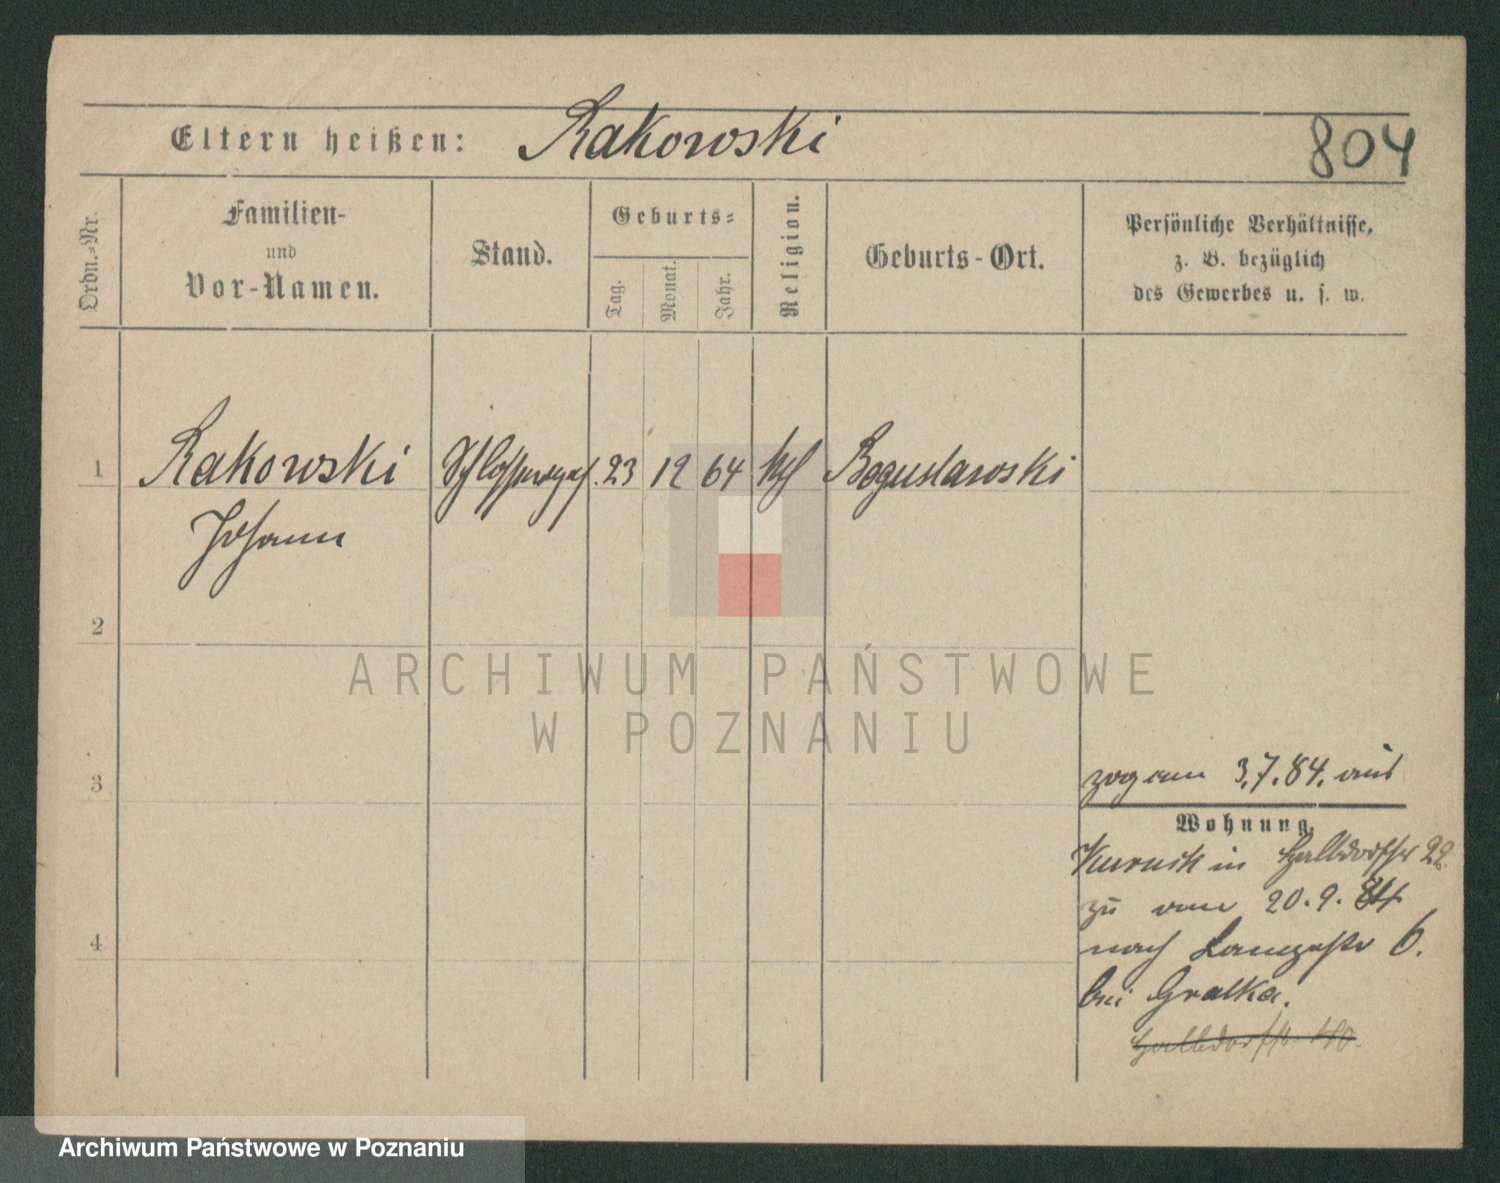 Eltern heißen: Rakowski
804
Ordn.-Nr.
Familien-
und
Vor-Namen.
Stand.
Geburts-
Tag.
Monat.
Jahr.
Religion.
Geburts-Ort.
Persönliche Verhältnisse,
z. B. bezüglich
des Gewerbes u. s. w.
1 Rakowski Schlosserges. 23 12 64 kth Boguslawski
Johann
2
ARCHIWUM PAŃSTWOWE
W POZNANIU
3
zog am 3.7.84. aus
Wohnung.
Kurnik in Halbdorfstr 22
zu am 20.9.84
nach Langestr 6.
4
bei Gralka.
Halbdorfstr
Archiwum Państwowe w Poznaniu